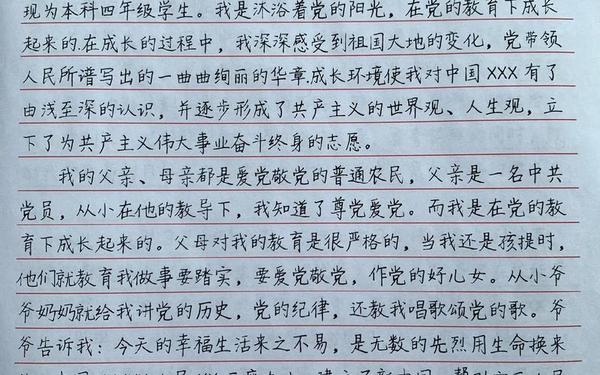 现为本科四年级学生。我是沐浴着党的阳光,在党的教育下成长
起来的.在成长的过程中,我深深感受到祖国大地的变化,党带领
人民所谱写出的一曲曲绚丽的华章.成长环境使我对中国XXX有了
由浅至深的认识,并逐步形成了共产主义的世界观、人生观,立
下了为共产主义伟大事业奋斗终身的志愿。
我的父亲、母亲都是爱党敬党的普通农民,父亲是一名中共
党员,从小在他的教导下,我知道了尊党爱党。而我是在党的教
育下成长起来的。父母对我的教育是很严格的,当我还是孩提时,
他们就教育我做事要踏实,要爱党敬党,作党的好儿女。从小爷
爷奶奶就给我讲党的历史,党的纪律,还教我唱歌颂党的歌。爷
爷告诉我:今天的幸福生活来之不易,是无数的先烈用生命换来